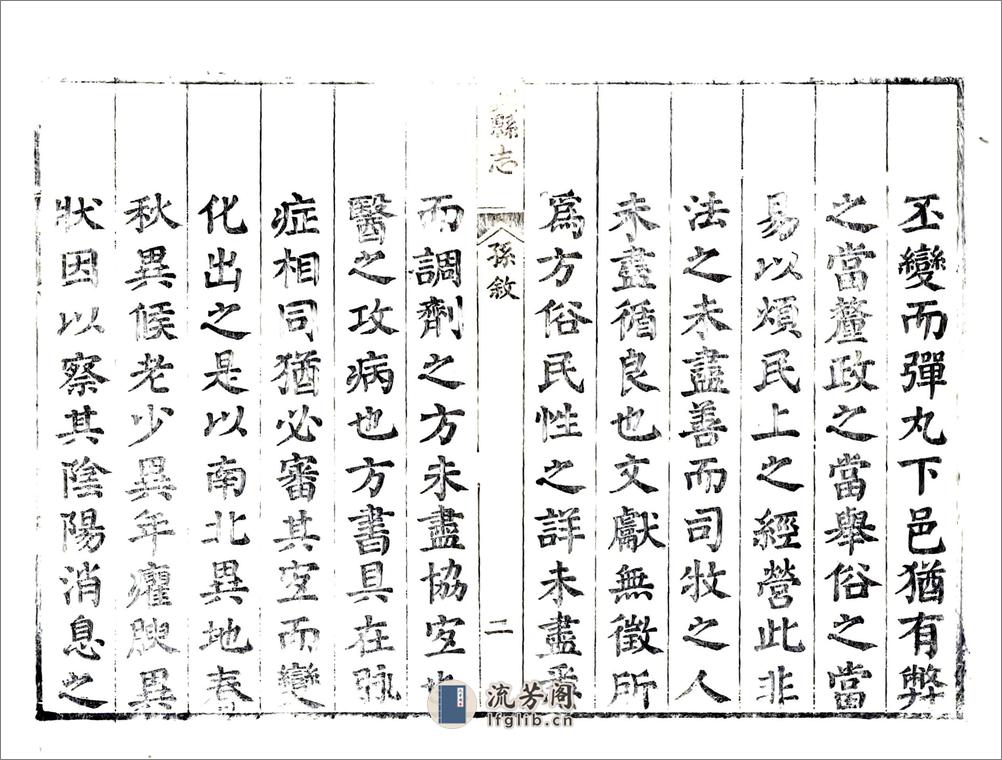 丕變而彈丸下邑猶有弊
之當釐政之當舉俗之當
易以煩民上之經營此非
法之未盡善而司牧之人
未盡循良也文獻無徵所
爲方俗民性之詳未盡悉
縣志
孫敘
二
而調劑之方未盡協宜也
醫之攻病也方書具在脉
症相同猶必審其宜而變
化出之是以南北異地春
秋異候老少異年癯腴異
狀因以察其陰陽消息之
流芳阁
lfglib.cn